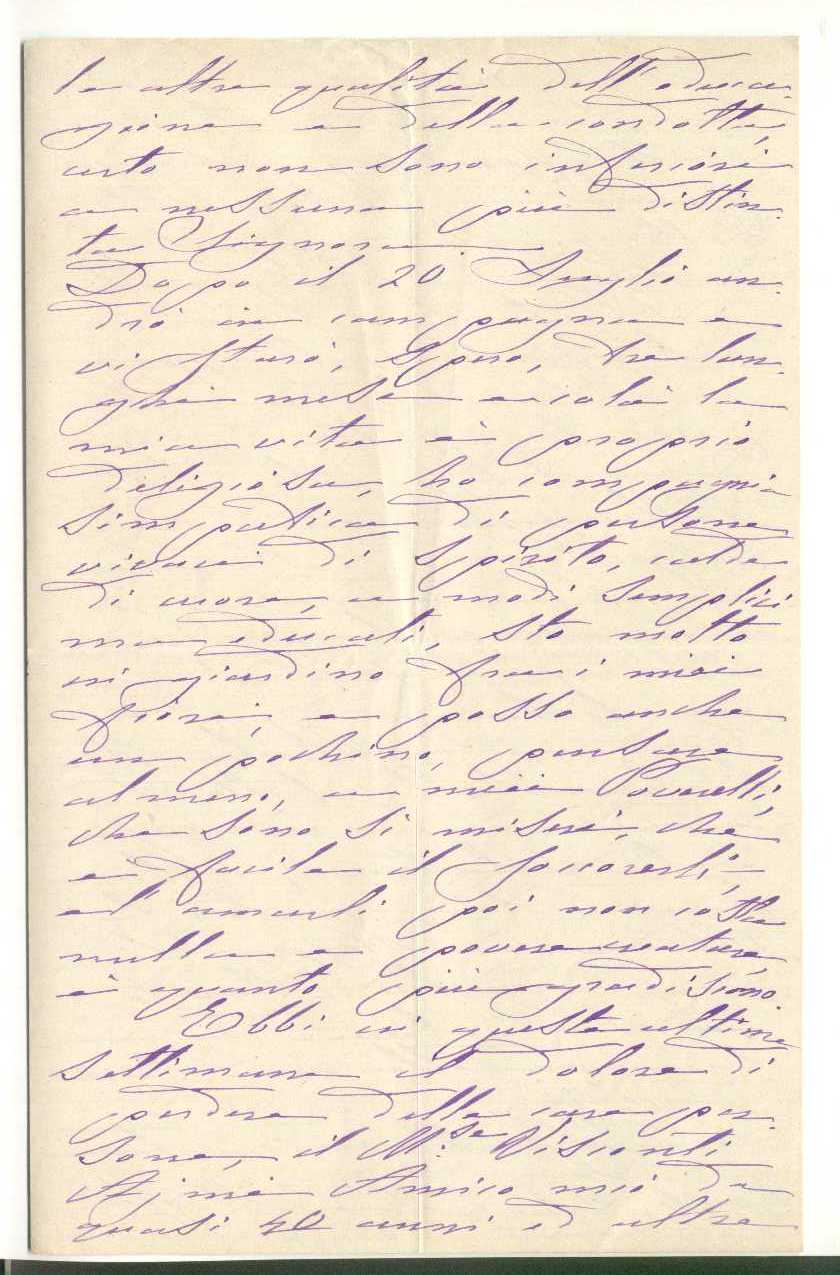 le altre qualità dell'educa-
zione e della condotta,
certo non sono inferiori
a nessuna più distin-
ta Signora.
Dopo il 20 Luglio an-
drò in campagna e
vi starò, spero, tre lun-
ghi mesi e colà la
mia vita è proprio
deliziosa, ho compagnia
simpatica di persone
vivaci di spirito, calde
di cuore, a modi semplici
ma educati, sto molto
in giardino fra i miei
fiori, e posso anche
un pochino, pensare
almeno, a miei Poverelli,
che sono sì miseri, che
è facile il soccorerli,-
ed amarli poi non costa
nulla e povere creature,
è quanto più gradiscono
Ebbi in queste ultime
settimane il dolore di
perdere delle care per-
sone, il M.se Visconti
Ajmi Amico mio da
quasi 40 anni ed altre